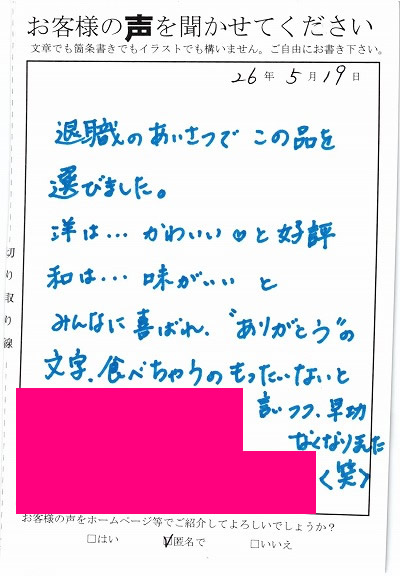 お客様の声を聞かせてください
文章でも箇条書きでもイラストでも構いません。ご自由にお書き下さい。
26年5月19日
退職のあいさつで この品を
選びました。
洋は… かわいい♡と好評
和は… 味がいい と
みんなに喜ばれ、“ありがとう”の
文字、食べちゃうのもったいないと
言いつつ、早功
なくなりました
〈笑〉
切り取り線
お客様の声をホームページ等でご紹介してよろしいでしょうか?
□はい ☑匿名で □いいえ